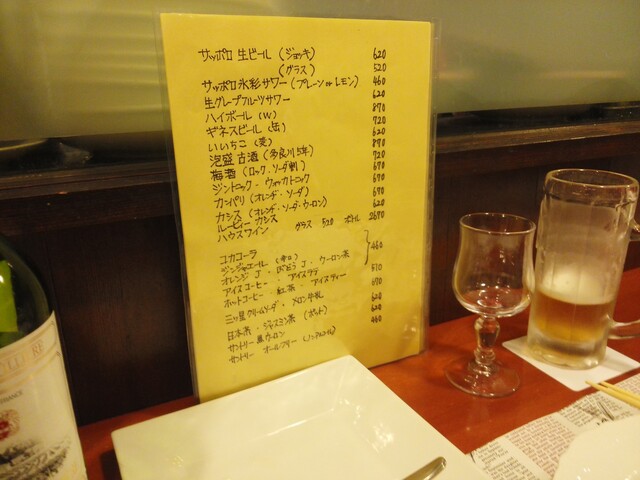 サッポロ 生ビール (ジョッキ) 620
(グラス) 520
サッポロ氷彩サワー (プレーン or レモン) 460
生グレープフルーツサワー 620
ハイボール (W) 870
ギネスビール (缶) 720
いいちこ (麦) 620
泡盛 古酒 (多良川5年) 870
梅酒 (ロック・ソーダ割) 720
ジントニック・ウォッカトニック 670
カンパリ (オレンヂ・ソーダ) 670
カシス (オレンヂ・ソーダ・ウーロン) 670
ルービィーカシス 620
ハウスワイン グラス 520 ボトル 2670
コカコーラ
ジンジャエール (辛口) 460
オレンジJ・ぶどうJ・ウーロン茶
アイスコーヒー・アイスラテ 510
ホットコーヒー・紅茶・アイスティー
三ッ星クリームソーダ・メロン牛乳 620
日本茶・ジャスミン茶 (ポット) 620
サントリー黒ウーロン
サントリー オールフリー (ノンアルコール)